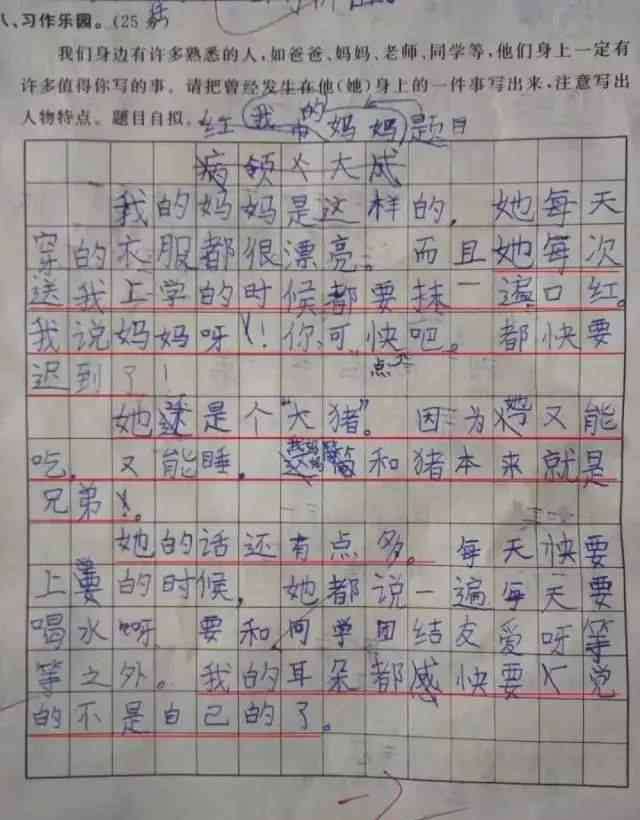 八、习作乐园。(25分)
我们身边有许多熟悉的人，如爸爸、妈妈、老师、同学等，他们身上一定有
许多值得你写的事。请把曾经发生在他(她)身上的一件事写出来，注意写出
人物特点。题目自拟。
红 我的妈妈 题目
病领大成
我的妈妈是这样的，她每天
穿的衣服都很漂亮。而且她每次
送我上学的时候都要抹一遍口红。
我说妈妈呀！你可快吧。都快要
点
迟到了！
她还是个"大猪"。因为她又能
吃，又能睡，我妈妈和猪本来就是
兄弟。
她的话还有点多。每天快要
上的时候，她都说一遍每天要
喝水呀 要和同学团结友爱呀等
等之外。我的耳朵都感快要觉
的不是自己的了。